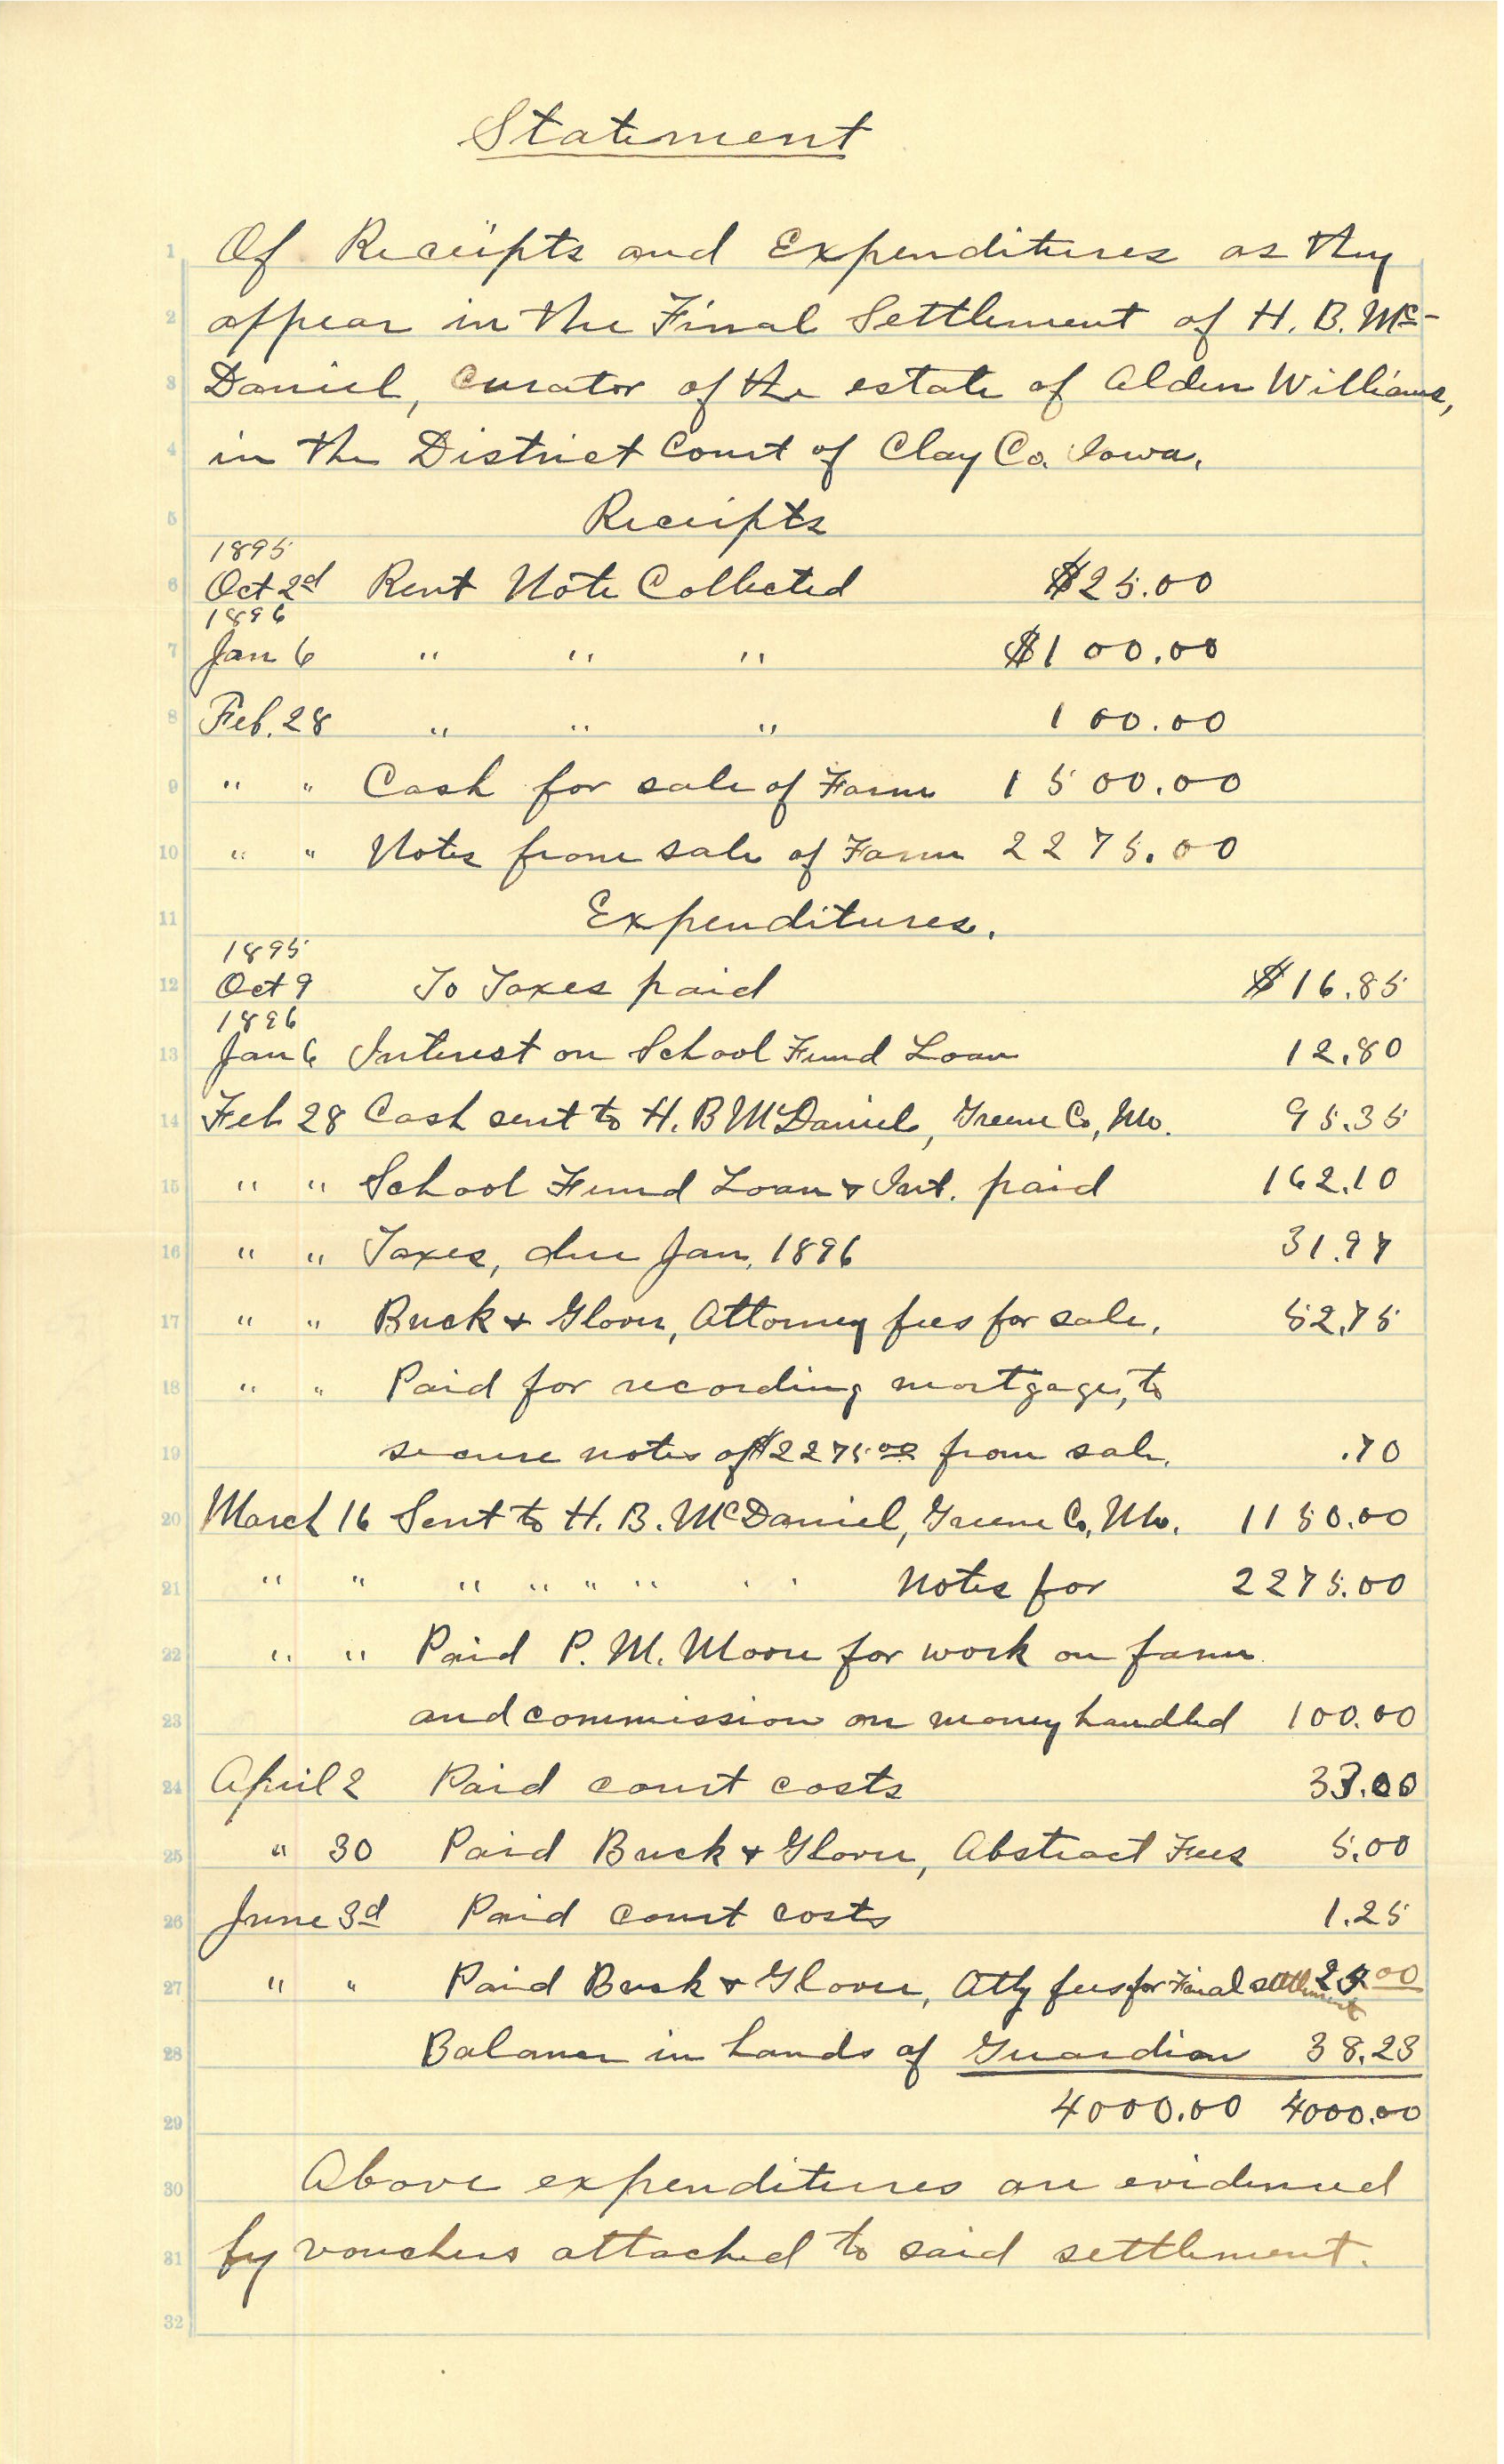 Statement
1 Of Receipts and Expenditures as they
2 appear in the Final Settlement of H. B. Mc-
3 Daniel, Curator of the estate of Alden Williams,
4 in the District Court of Clay Co. Iowa.
5 Receipts
1895
6 Oct 2d Rent Note Collected $25.00
1896
7 Jan 6 " " " $100.00
8 Feb. 28 " " " 100.00
9 " " Cash for sale of Farm 1500.00
10 " " Notes from sale of Farm 2275.00
11 Expenditures.
1895
12 Oct 9 To Taxes paid $16.85
1896
13 Jan 6 Interest on School Fund Loan 12.80
14 Feb 28 Cash sent to H. B McDaniel, Greene Co, Mo. 95.35
15 " " School Fund Loan & Int. paid 162.10
16 " " Taxes, due Jan, 1896 31.97
17 " " Buck & Glover, Attorney fees for sale. 52.75
18 " " Paid for recording mortgage, to
19 secure notes of $2275.00 from sale. .70
20 March 16 Sent to H. B. McDaniel, Greene Co, Mo. 1150.00
21 " " " " " " " " Notes for 2275.00
22 " " Paid P. M. Moore for work on farm
23 and commission on money handled 100.00
24 April 2 Paid court costs 33.00
25 " 30 Paid Buck & Glover, Abstract Fees 5.00
26 June 3d Paid court costs 1.25
27 " " Paid Buck & Glover, Atty fees for Final settlement 25.00
28 Balance in hands of Guardian 38.23
29 4000.00 4000.00
30 Above expenditures are evidenced
31 by vouchers attached to said settlement.
32